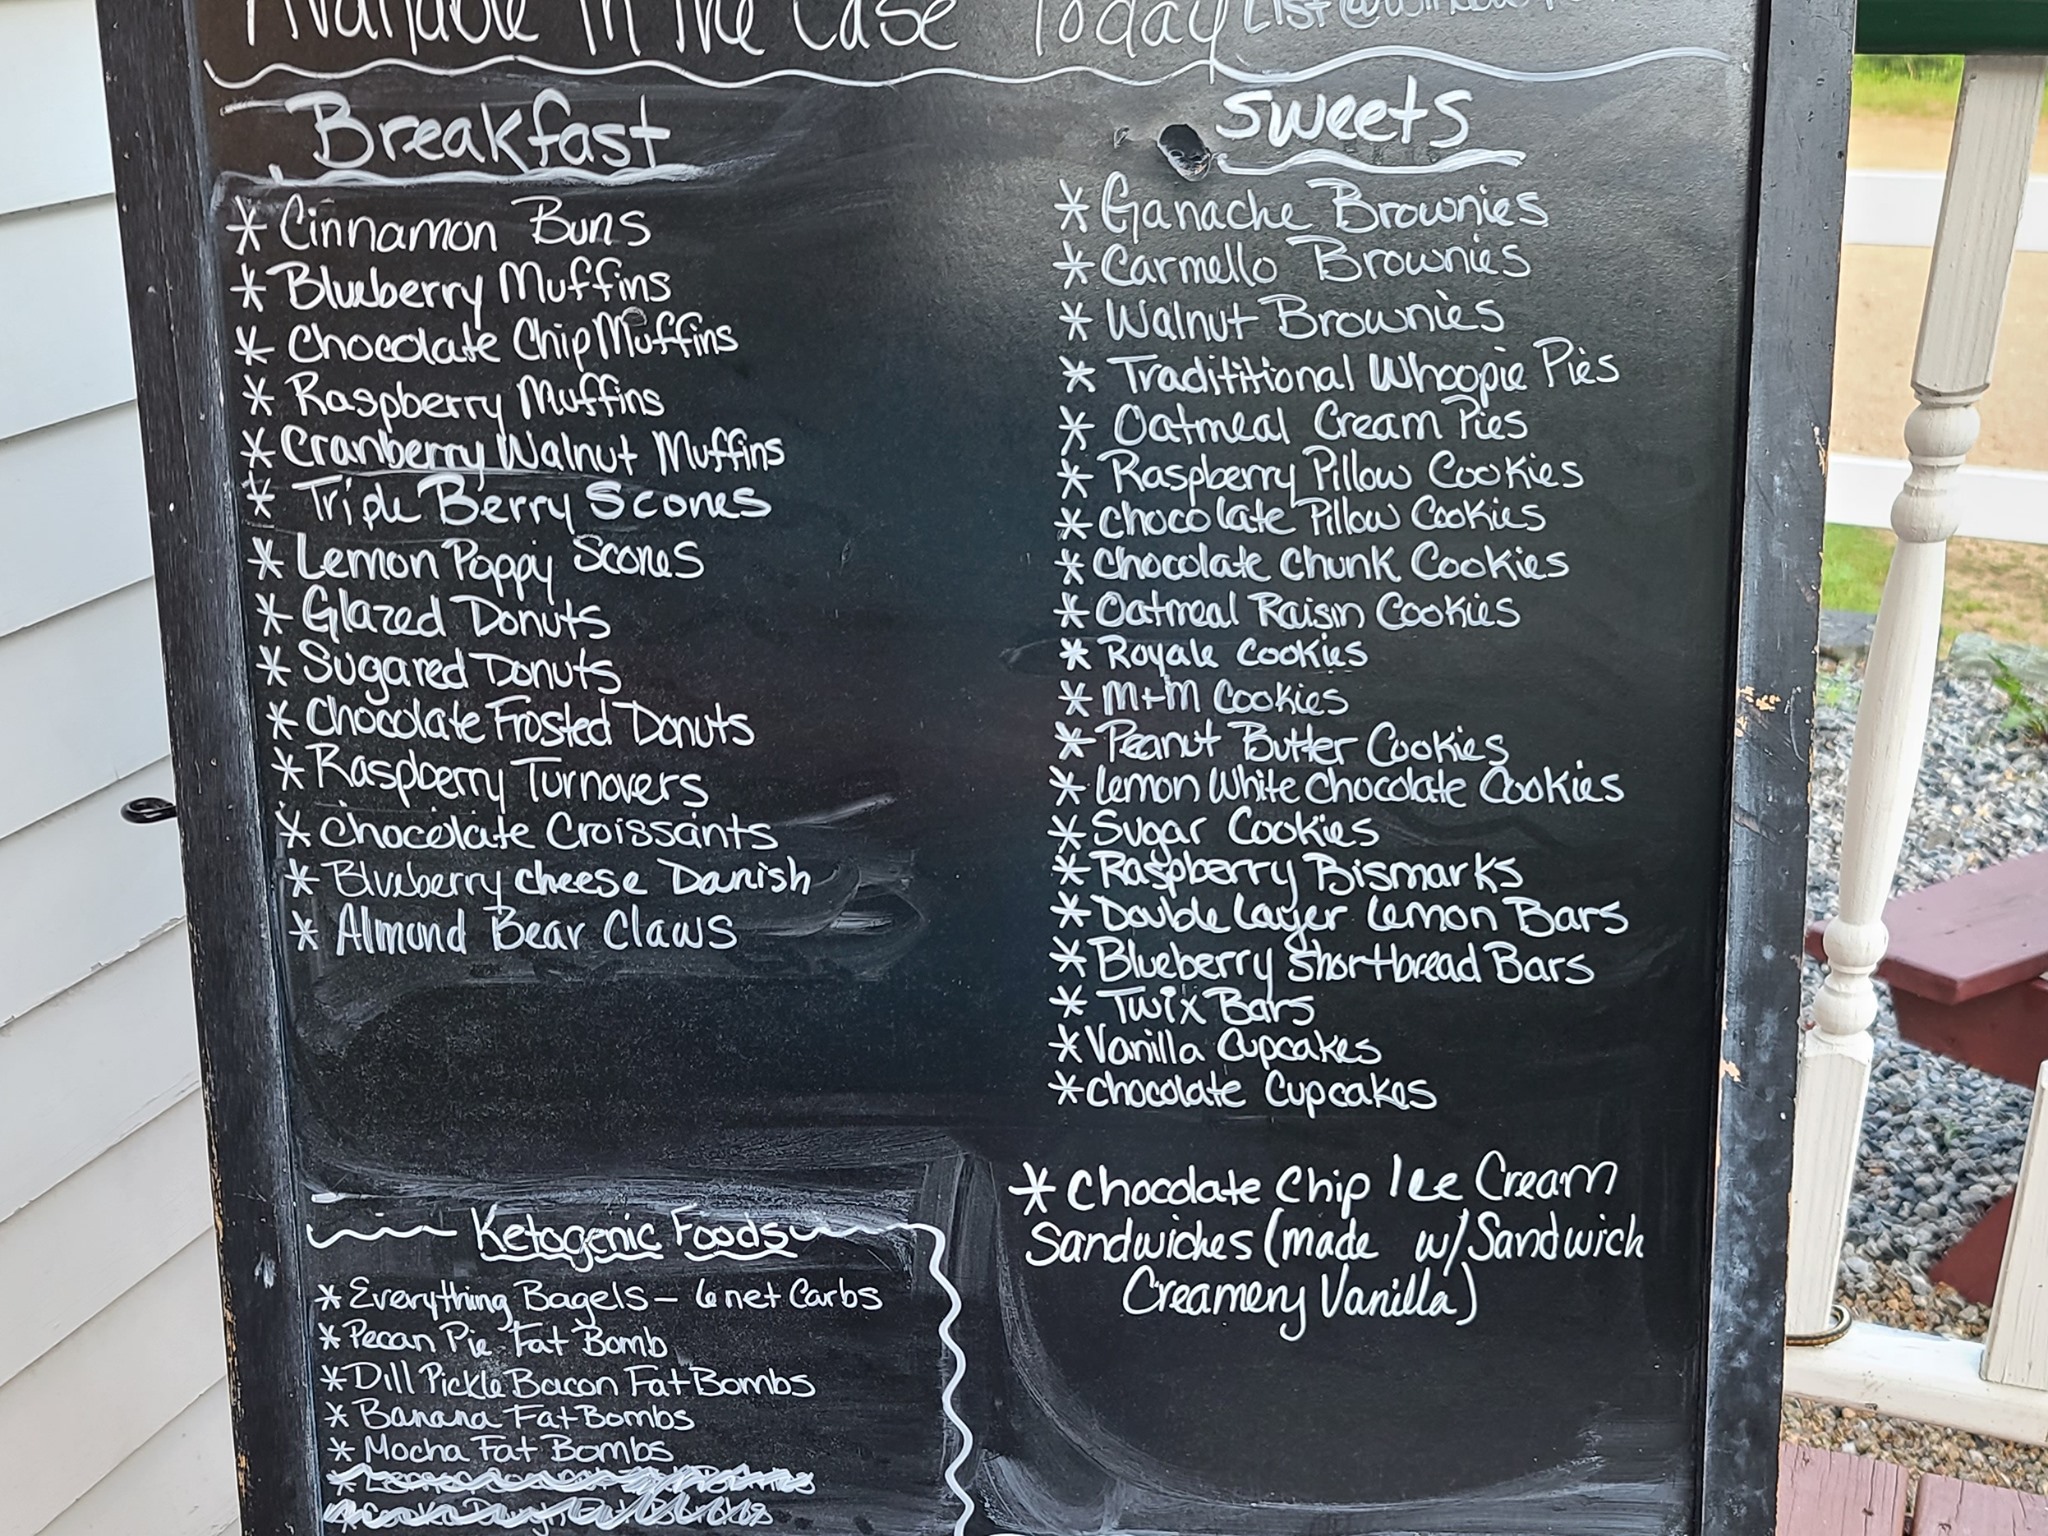 Available In The Case Today
Breakfast
* Cinnamon Buns
* Blueberry Muffins
* Chocolate Chip Muffins
* Raspberry Muffins
* Cranberry Walnut Muffins
* Triple Berry Scones
* Lemon Poppy Scones
* Glazed Donuts
* Sugared Donuts
* Chocolate Frosted Donuts
* Raspberry Turnovers
* Chocolate Croissants
* Blueberry cheese Danish
* Almond Bear Claws
Ketogenic Foods
* Everything Bagels - 6 net Carbs
* Pecan Pie Fat Bomb
* Dill Pickle Bacon Fat Bombs
* Banana Fat Bombs
* Mocha Fat Bombs
Sweets
* Ganache Brownies
* Carmello Brownies
* Walnut Brownies
* Tradititional Whoopie Pies
* Oatmeal Cream Pies
* Raspberry Pillow Cookies
* Chocolate Pillow Cookies
* Chocolate Chunk Cookies
* Oatmeal Raisin Cookies
* Royale Cookies
* M+M Cookies
* Peanut Butter Cookies
* Lemon White Chocolate Cookies
* Sugar Cookies
* Raspberry Bismarks
* Double Layer Lemon Bars
* Blueberry Shortbread Bars
* Twix Bars
* Vanilla Cupcakes
* Chocolate Cupcakes
* Chocolate Chip Ice Cream
Sandwiches (made w/ Sandwich
Creamery Vanilla)